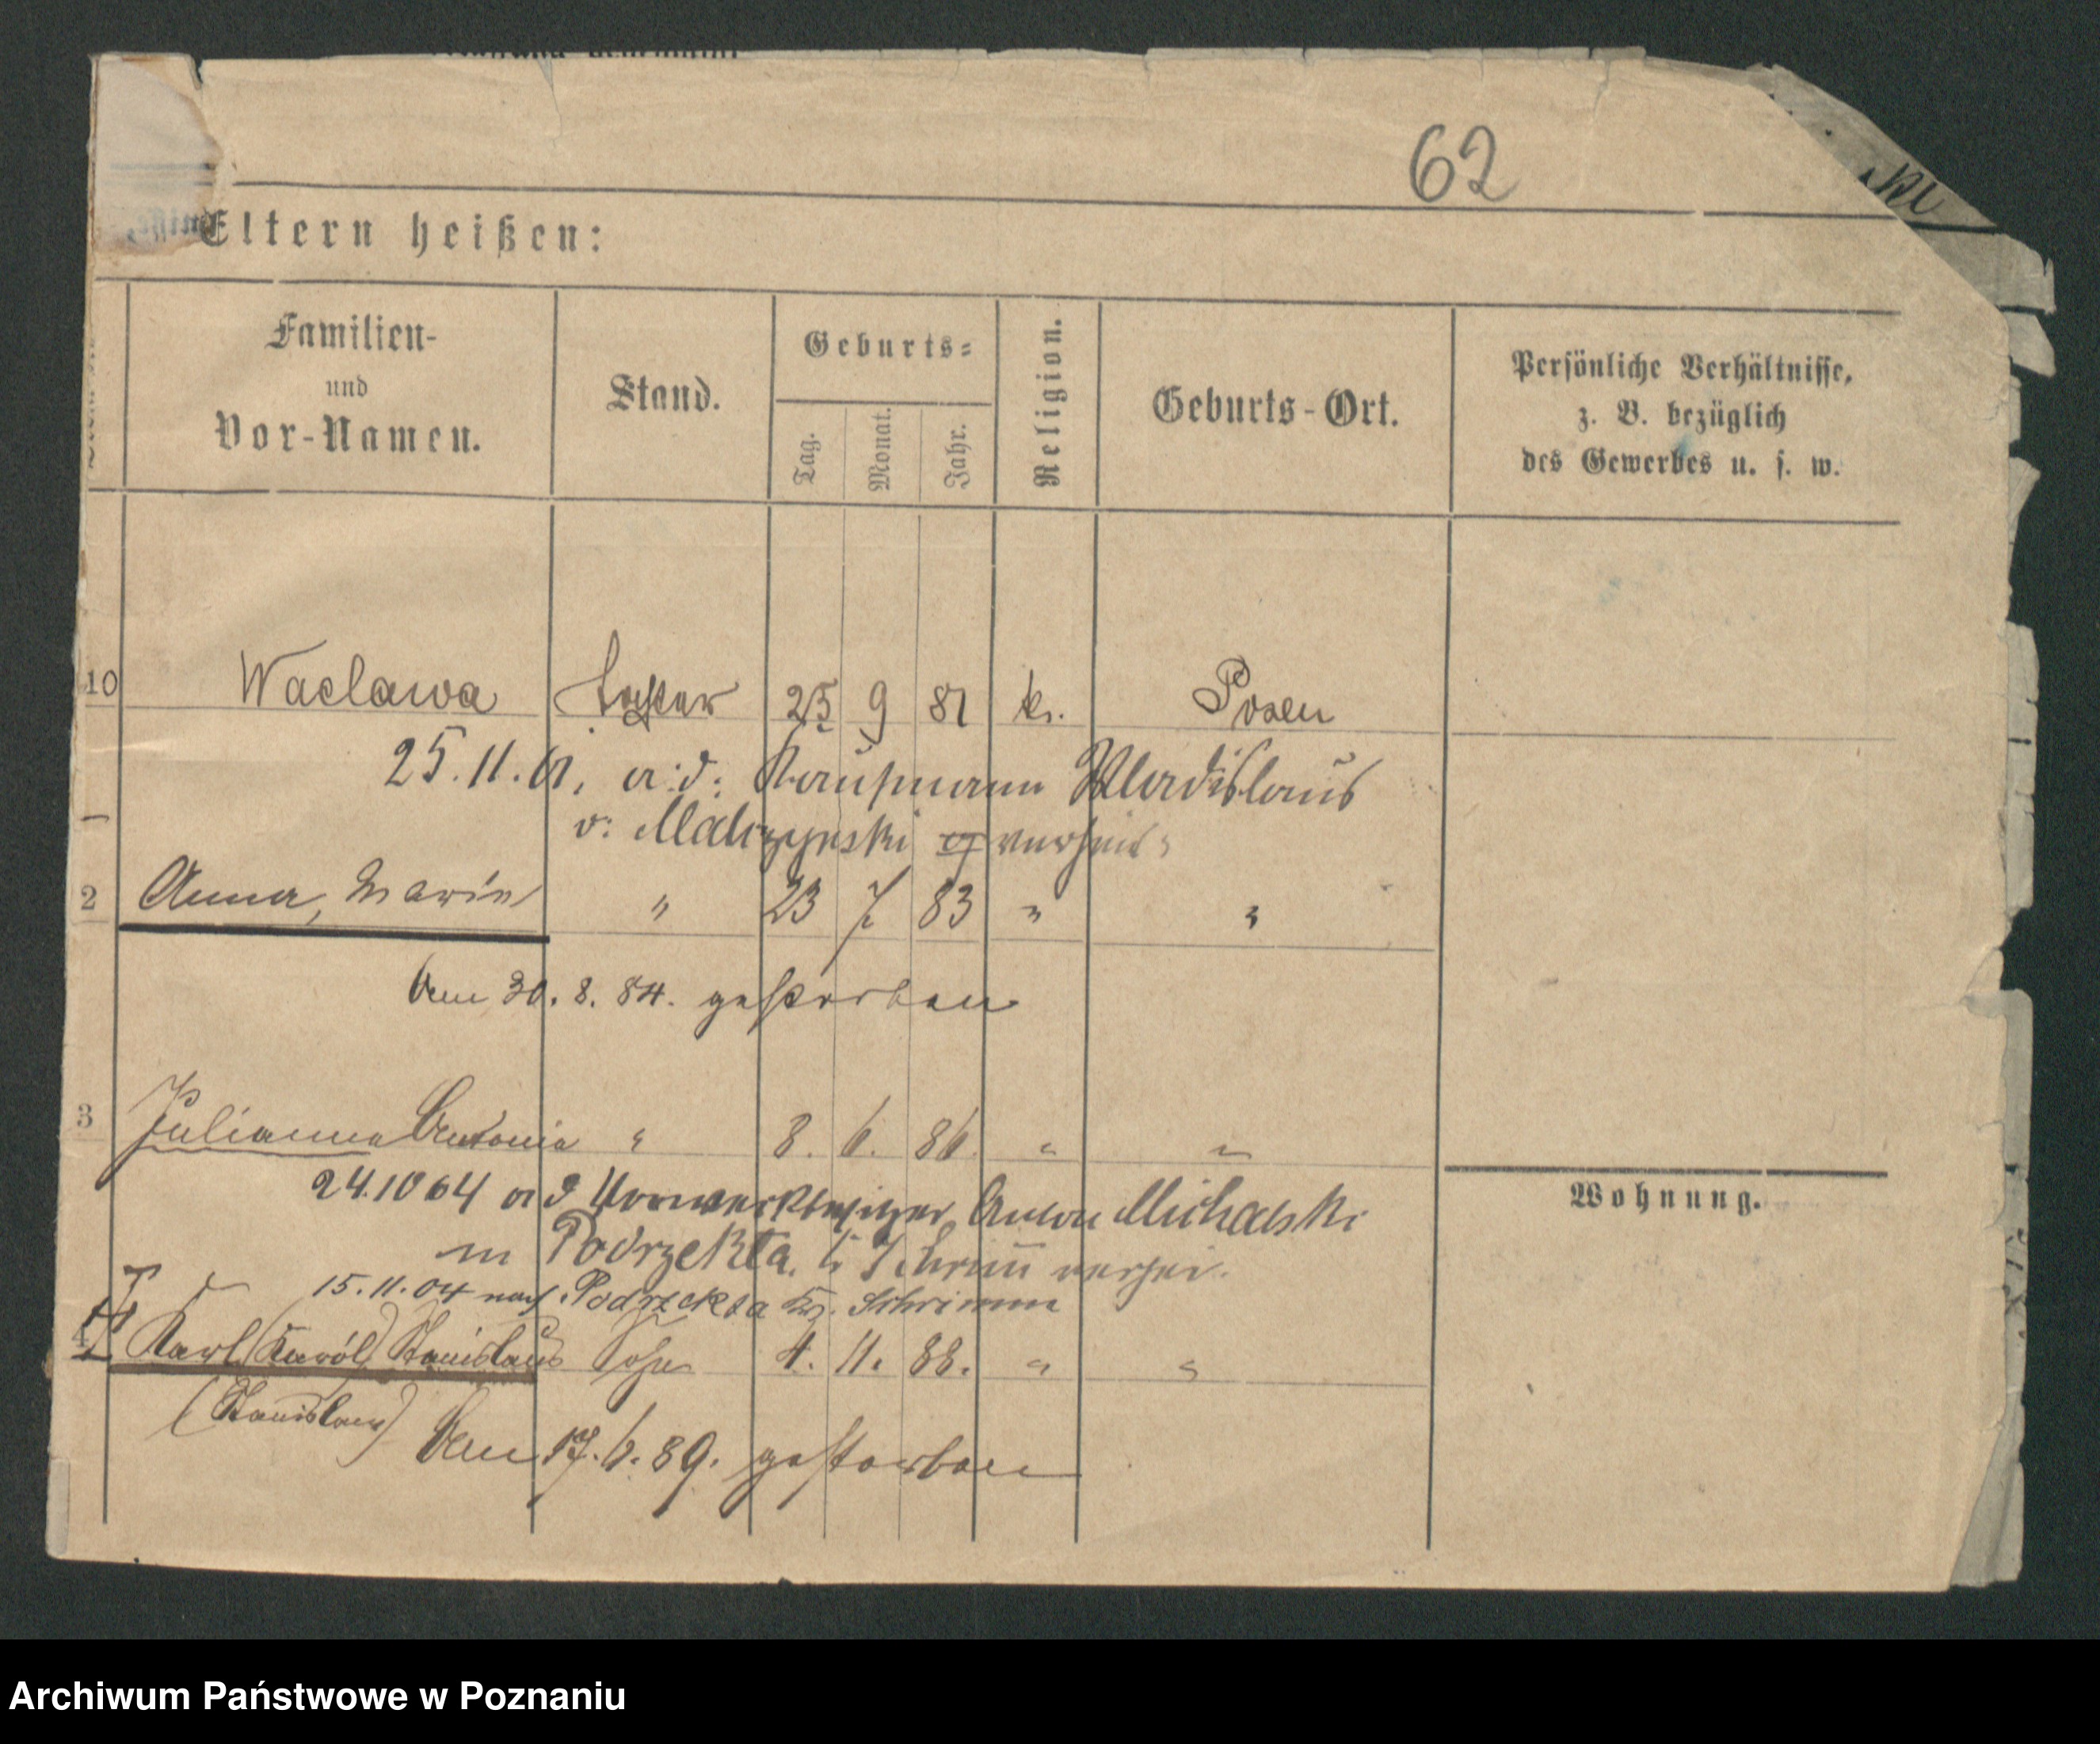 62
Eltern heißen:
Familien-
und
Vor-Namen.
Stand.
Geburts-
Tag.
Monat.
Jahr.
Religion.
Geburts-Ort.
Persönliche Verhältnisse,
z. B. bezüglich
des Gewerbes u. s. w.
10 Waclawa Tochter 25 9 81 k. Posen
25.11.01. a. d. Kaufmann Wladislaus
v. verheir.
2 Anna, Maria " 23 7. 83 " "
Den 30. 8. 84. gestorben
3 Julianna Antonia " 8. 6. 86. " "
24.10 04 a d Vorwerksbesitzer Anton Michalski
in Podrzekta. b. Schrim verhei.
Wohnung.
15.11.04 nach Podrzekta Kr. Schrimm
4 Karl (Karól) Stanislaus Sohn 4. 11. 88. " "
(Stanislaw)
Den 17. 6. 89. gestorben
Archiwum Państwowe w Poznaniu